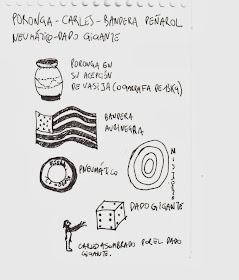 PORONGA - CARLES - BANDERA PEÑAROL
NEUMÁTICO - DADO GIGANTE
PORONGA EN
SU ACEPCIÓN
DE VASIJA (O GARRAFA DE 13KG)
BANDERA
AURINEGRA
PNEUMÁTICO
DADO GIGANTE
CARLES ASOMBRADO POR EL DADO
GIGANTE.